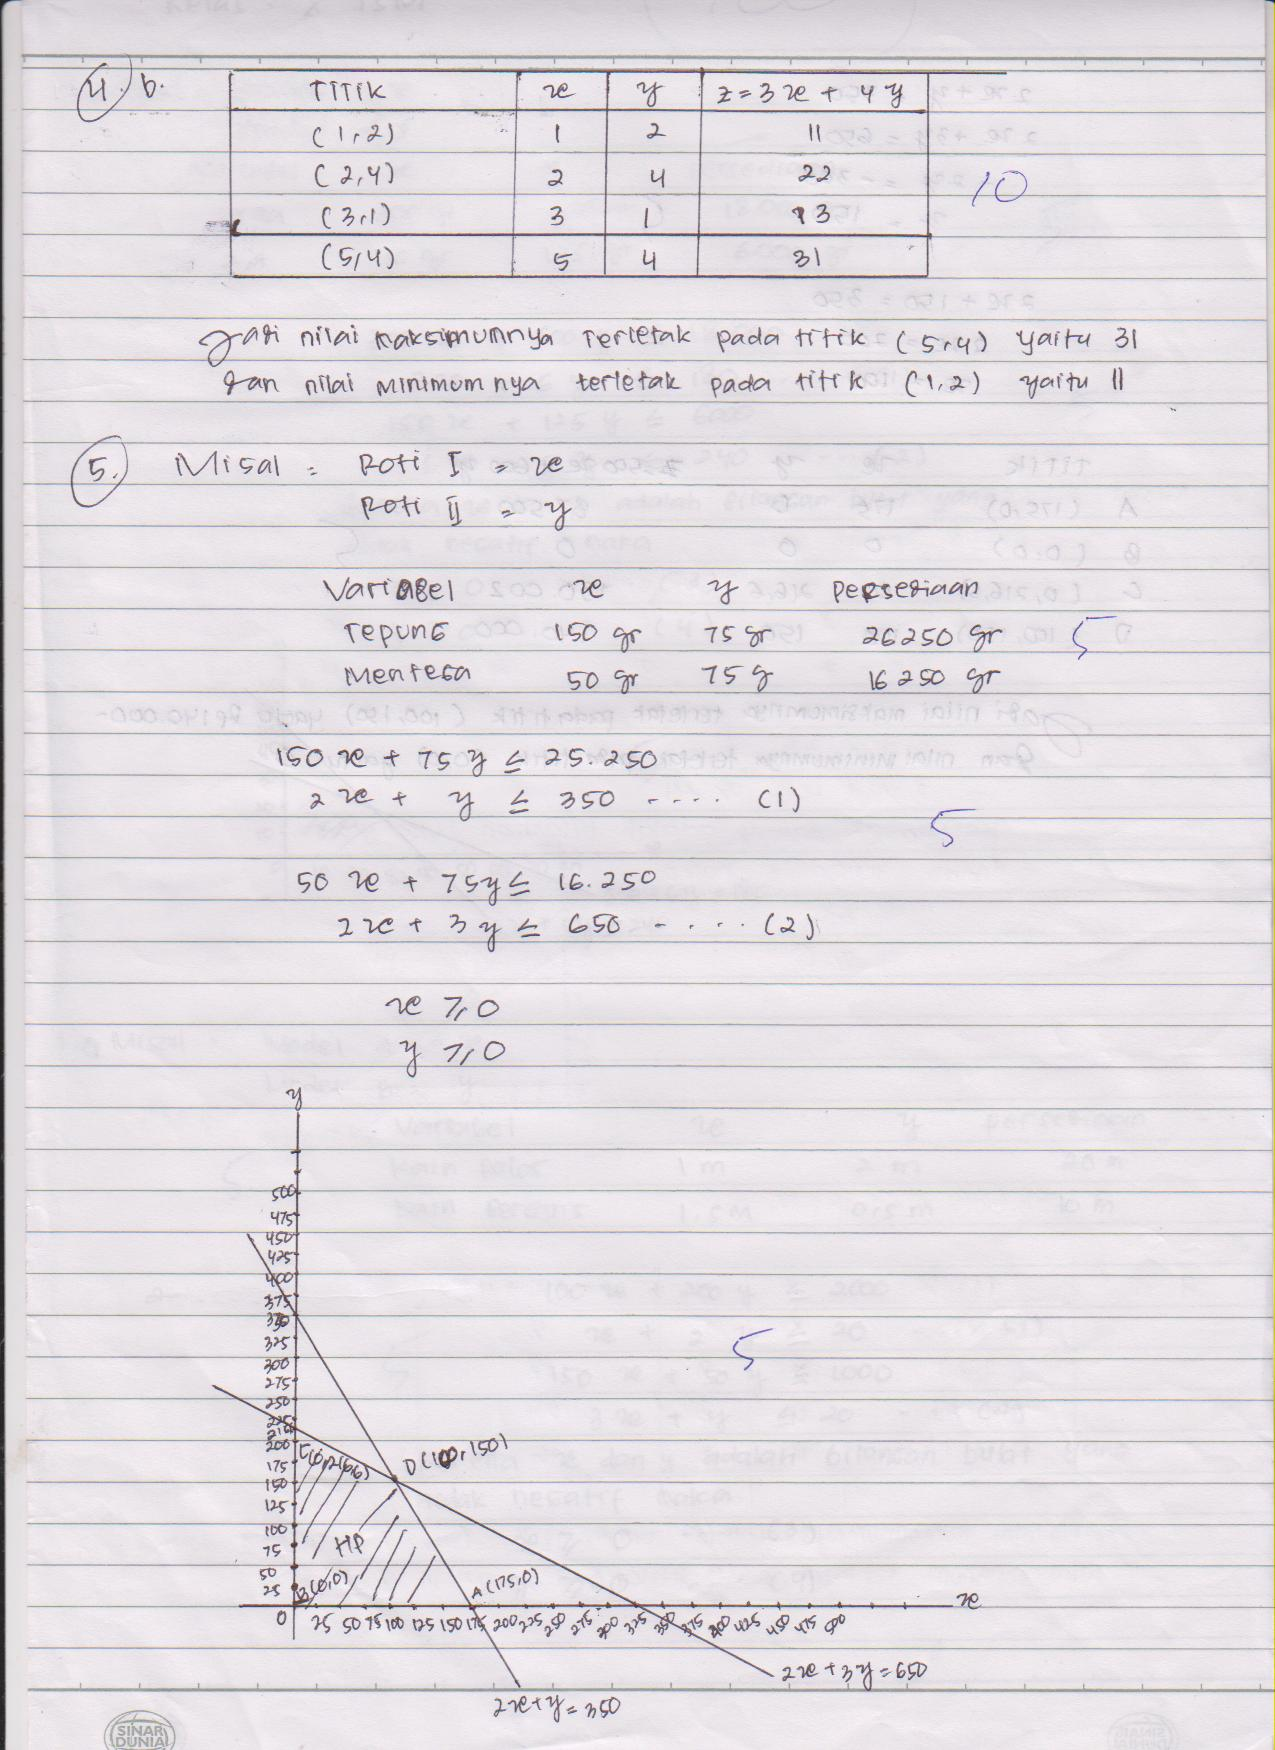 4. b.
TITIK x y z = 3x + 4y
(1,2) 1 2 11
(2,4) 2 4 22
(3,1) 3 1 13
(5,4) 5 4 31
10
Jadi nilai maksimumnya terletak pada titik (5,4) yaitu 31
dan nilai minimumnya terletak pada titik (1,2) yaitu 11
5. Misal = Roti I = x
Roti II = y
Variabel x y persediaan
Tepung 150 gr 75 gr 26250 gr
5
Mentega 50 gr 75 g 16250 gr
150 x + 75 y ≤ 25.250
2x + y ≤ 350 .... (1)
5
50 x + 75y ≤ 16.250
2x + 3y ≤ 650 - .... (2)
x ≥ 0
y ≥ 0
y
500
475
450
425
400
375
350
325
300
275
250
225
200
175
150
125
100
75
50
25
0
5
D (100,150)
HP
B(0,0)
A (175,0)
25 50 75 100 125 150 175 200 225 250 275 300 325 350 375 400 425 450 475 500
x
2x + 3y = 650
2x + y = 350
SINAR
DUNIA